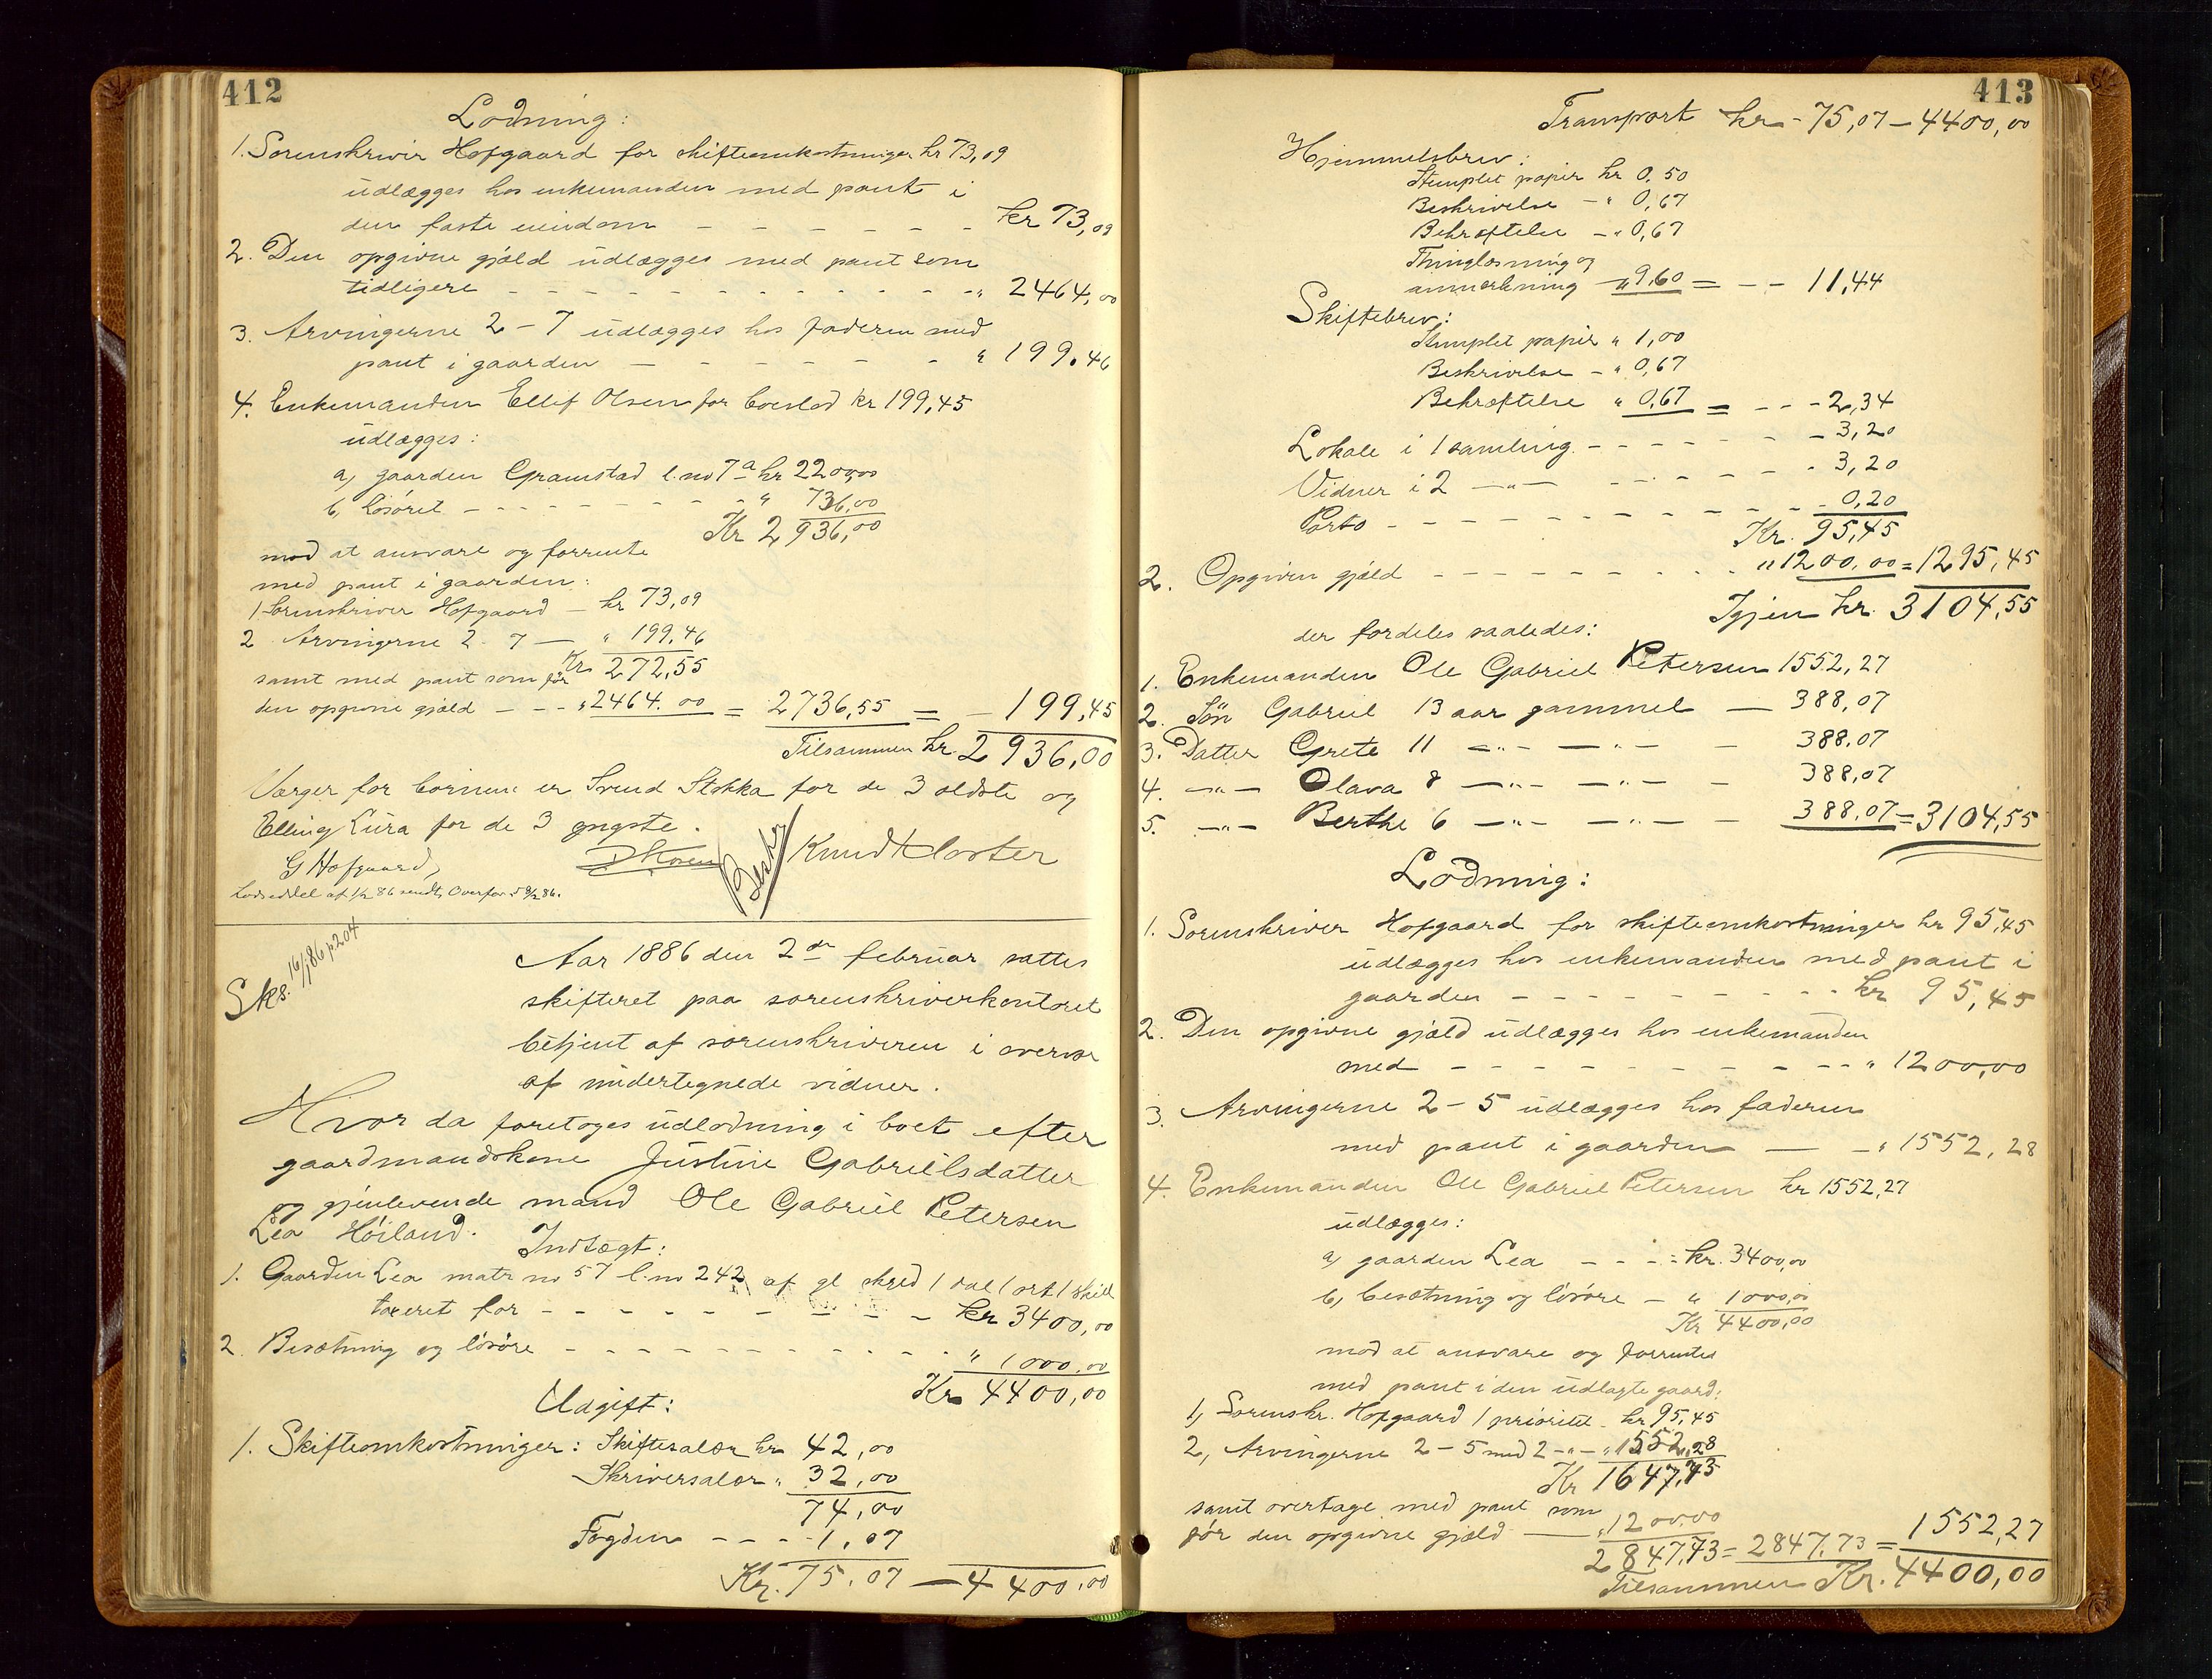 412
Lodning:
1. Sorenskriver Hofgaard for skifteomkostninger kr 73,09
udlægges hos enkemanden med pant i
den faste eiendom - - - - - - kr 73,09
2. Den opgivne gjæld udlægges med pant som
tidligere - - - - - - - - - - - " 2464,00
3. Arvingerne 2 - 7 udlægges hos faderen med
pant i gaarden - - - - - - - " 199,46
4. Enkemanden Ellef Olsen for boeslod kr 199,45
udlægges:
a, gaarden Gramstad l. no 7a kr 2200,00
b, Løsøret - - - - - - - " 736,00
Kr 2936,00
mod at ansvare og forrente
med pant i gaarden:
1 Sorenskriver Hofgaard - kr 73,09
2 Arvingerne 2 - 7 — " 199,46
Kr 272,55
samt med pant som før
den opgivne gjæld - - - " 2464,00 = 2736,55 = - 199,45
Tilsammen kr 2936,00
Værger for børnene er Svend Stokka for de 3 ældste og
Elling Kura for de 3 yngste.
G Hofgaard, Knud Kloster
Lodseddel af 1/2 86 sendt
Sks. 16/1 86 p 204
Aar 1886 den 2den februar sattes
skifteret paa sorenskriverkontoret
betjent af sorenskriveren i overvær
af undertegnede vidner.
Hvor da foretoges udlodning i boet efter
gaardmandskone Justine Gabrielsdatter
og gjenlevende mand Ole Gabriel Petersen
Lea Høiland. Indtægt:
1. Gaarden Lea matr no 57 l. no 242 af gl skyld 1 dal 1 ort 1 skill
taxeret for - - - - - - - - - - kr 3400,00
2. Besætning og løsøre - - - - - - - - - - - " 1000,00
Kr 4400,00
Udgift:
1. Skifteomkostninger: Skiftesalær kr 42,00
Skriversalær " 32,00
74,00
Fogden - - - - 1,07
Kr. 75,07 — 4400,00
413
Transport kr - 75,07 — 4400,00
Hjemmelsbrev:
Stemplet papir kr 0,50
Beskrivelse - " 0,67
Bekræftelse - " 0,67
Thinglæsning og
anmærkning - " 9,60 = - - 11,44
Skiftebrev:
Stemplet papir " 1,00
Beskrivelse - " 0,67
Bekræftelse " 0,67 = - - - 2,34
Lokale i 1 samling - - - - - - - 3,20
Vidner i 2 —"— - - - - - - 3,20
Porto - - - - - - - - - - - - 0,20
Kr. 95,45
2. Opgiven gjæld - - - - - - - - " 1200,00 = 1295,45
Igjen kr. 3104,55
der fordeles saaledes:
1. Enkemanden Ole Gabriel Petersen 1552,27
2. Søn Gabriel 13 aar gammel — 388,07
3. Datter Grete 11 —"— —"— - 388,07
4. —"— Olava 8 —"— —"— - 388,07
5. —"— Berthe 6 —"— —"— - 388,07 = 3104,55
Lodning:
1. Sorenskriver Hofgaard for skifteomkostninger kr 95,45
udlægges hos enkemanden med pant i
gaarden - - - - - - - - - - kr 95,45
2. Den opgivne gjæld udlægges hos enkemanden
med - - - - - - - - - - - - " 1200,00
3. Arvingerne 2 - 5 udlægges hos faderen
med pant i gaarden — - " 1552,28
4. Enkemanden Ole Gabriel Petersen kr 1552,27
udlægges:
a, gaarden Lea - - - - kr. 3400,00
b, besætning og løsøre - " 1000,00
Kr 4400,00
mod at ansvare og forrente
med pant i den udlagte gaard:
1, Sorenskr. Hofgaard 1 prioritet - kr 95,45
2, Arvingerne 2 - 5 med 2 -"- " 1552,28
Kr 1647,73
samt overtage med pant som
før den opgivne gjæld — " 1200,00
2847,73 = 2847,73 = 1552,27
Tilsammen Kr. 4400,00